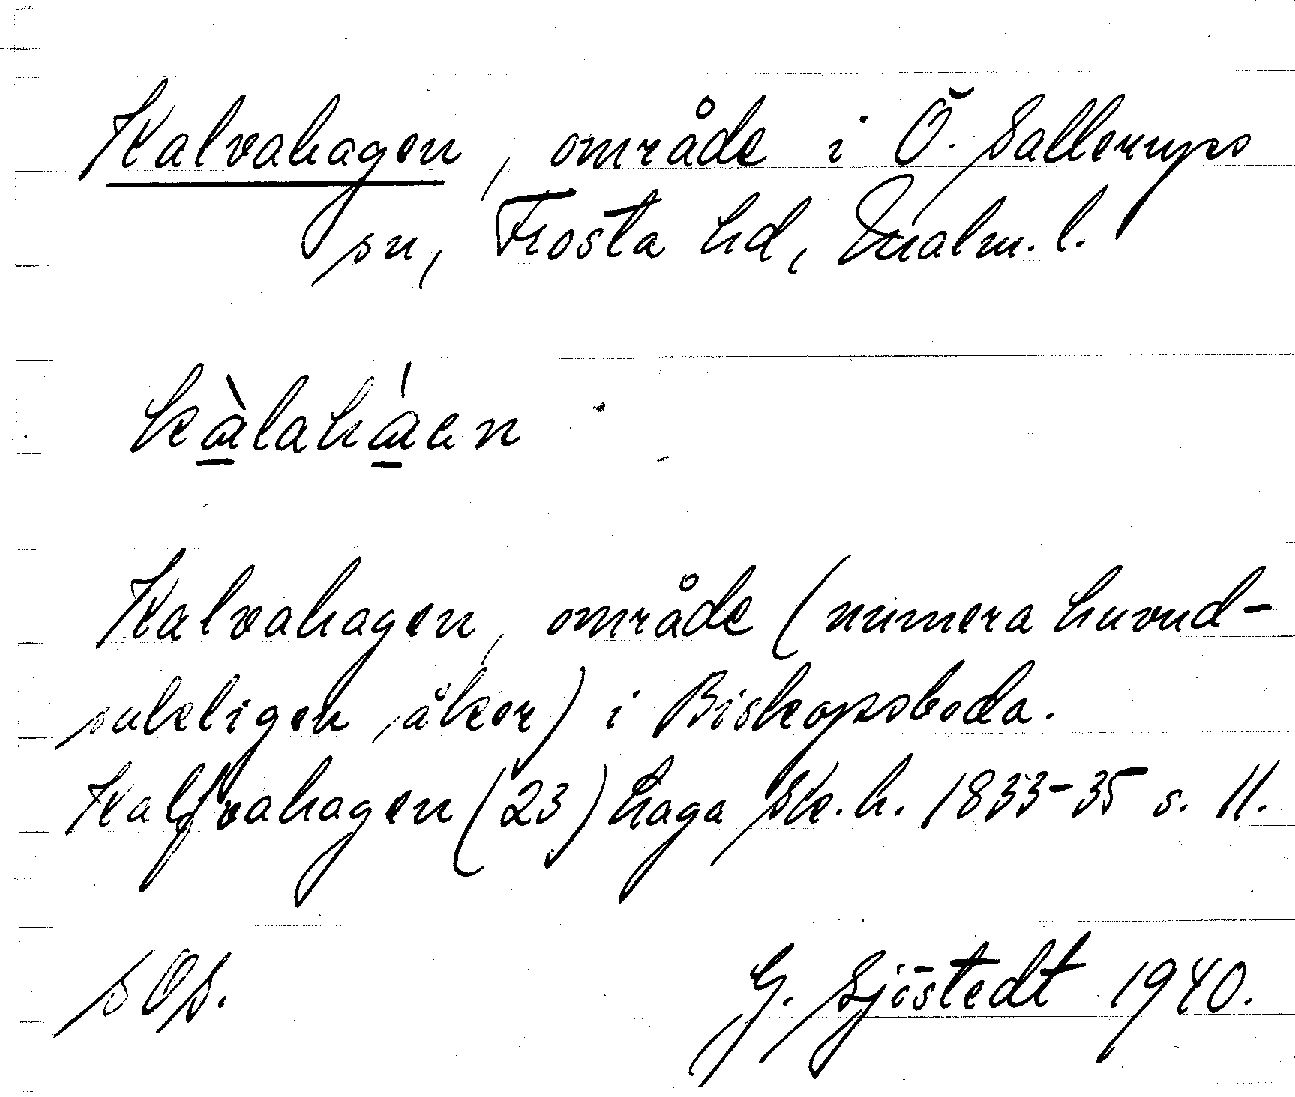 Kalvahagen, område i Ö. Sallerups
sn, Frosta hd, Malm. l.
kàlaháen
Kalvahagen, område (numera huvud-
sakligen åker) i Biskopsboda.
Kalfvahagen (23) haga Sk.h. 1833-35 s. 11.
SOS.
G. Sjöstedt 1940.